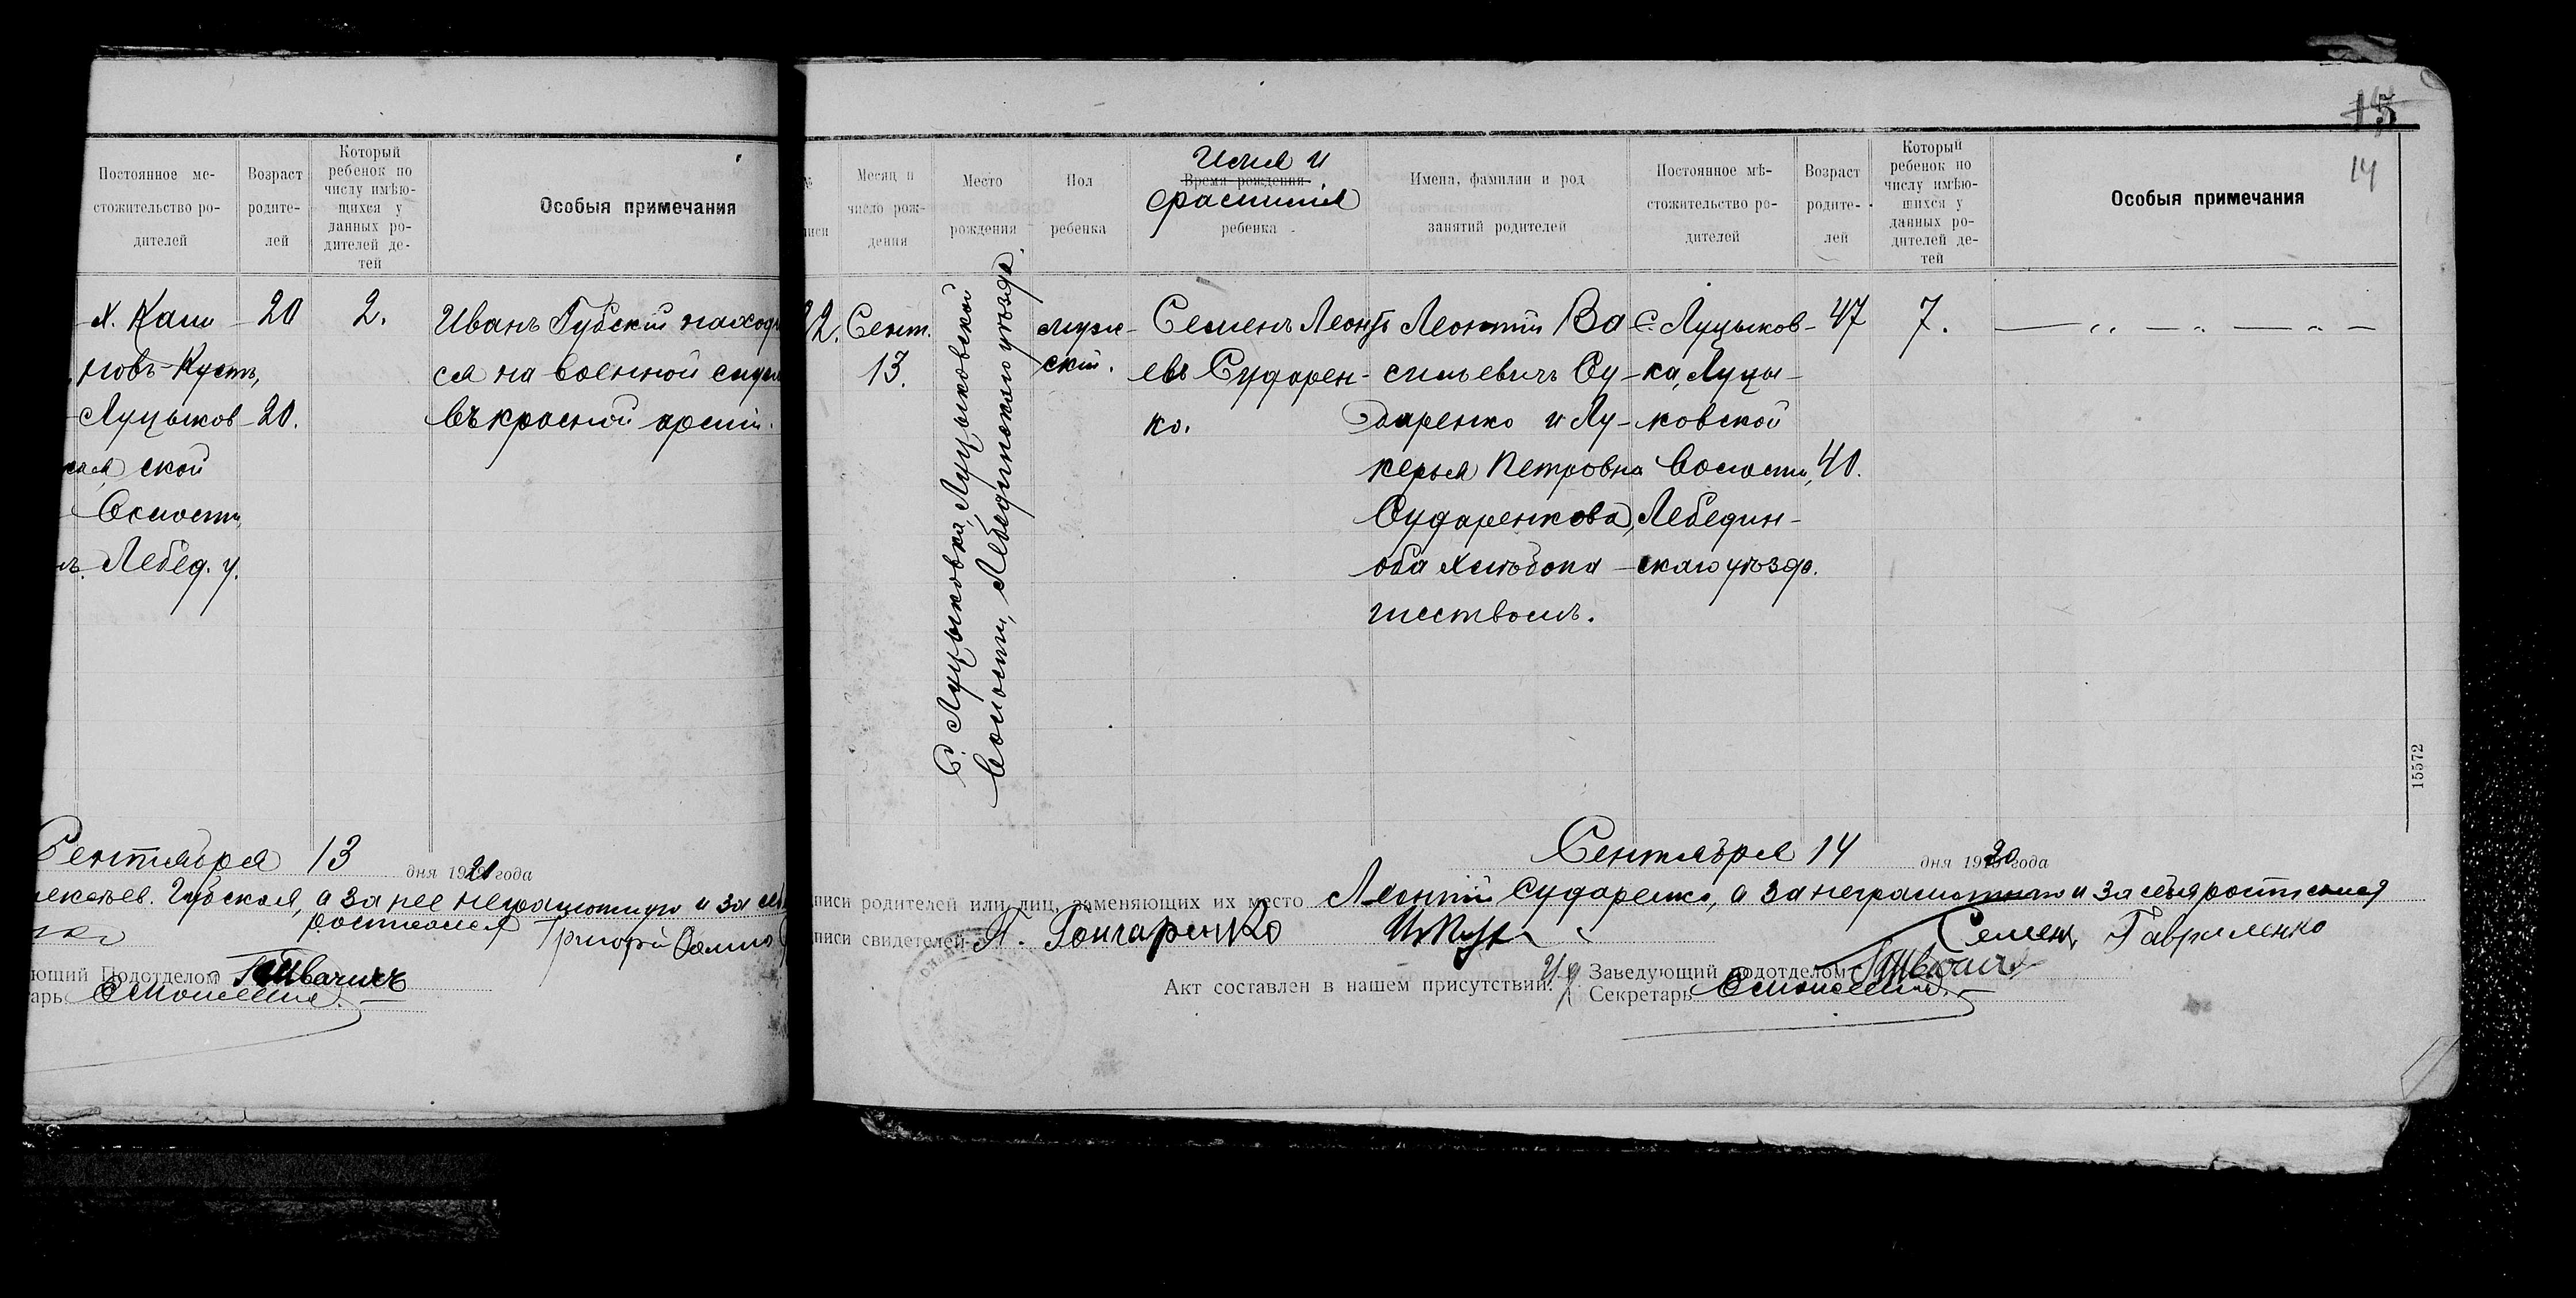 Постоянное ме-
стожительство ро-
дителей
Возраст
родите-
лей
Который
ребенок по
числу имѣю-
щихся у
данных ро-
дителей де-
тей
Особыя примечания
х. Каш
новъ-Кустъ,
Луцыков
ской
Волости
Лебед. у.
20
20.
2.
Иванъ Губскій находи
ся на военной служ
въ красной арміи.
Сентября 13 дня 1920 года
Губская, а за нее неграмотную и за себя
росписался Григорій
ющий Подотделом
арь
15
14
Месяц и
число рож-
дения
Место
рождения
Пол
ребенка
Имя и
Время рождения
фамилія
ребенка
Имена, фамилии и род
занятий родителей
Постоянное мѣ-
стожительство ро-
дителей
Возраст
родите-
лей
Который
ребенок по
числу имѣю-
щихся у
данных ро-
дителей де-
тей
Особыя примечания
12.
Сент.
13.
С. Луцыковка, Луцыковской
Волости, Лебединскаго уѣзда.
муж-
ской.
Семенъ Леонт
евъ Сударен-
ко.
Леонтій Ва
сильевичъ Су-
даренко и Лу-
керья Петровна
Сударенкова,
оба хлѣбопа
шествомъ.
С. Луцыков-
ка, Луцы-
ковской
Волости,
Лебедин-
скаго уѣзда.
47
40.
7.
15572
Сентября 14 дня 1920 года
писи родителей или лиц, заменяющих их место Леонтій Сударенко, а за неграмотнаго и за себя росписался
Семенъ Гавриленко
писи свидетелей П. Гончаренко
Акт составлен в нашем присутствии:
Заведующий подотделом
Секретарь